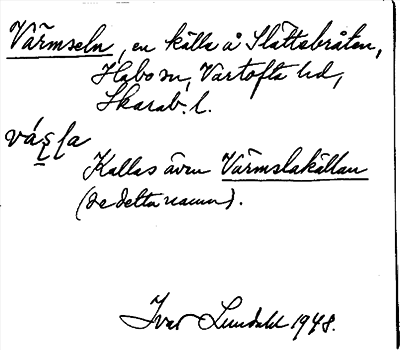 Värmseln, en källa å Slättsbråten,
Habo sn, Vartofta hd,
Skarab. l.
vá̱s̱ḻa
Kallas även Värmslakällan
(se detta namn).
Ivar Lundahl 1948.